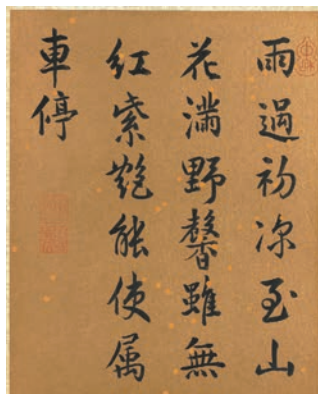 雨過初凉至山
花滿野馨雖無
紅紫艶能使属
車停